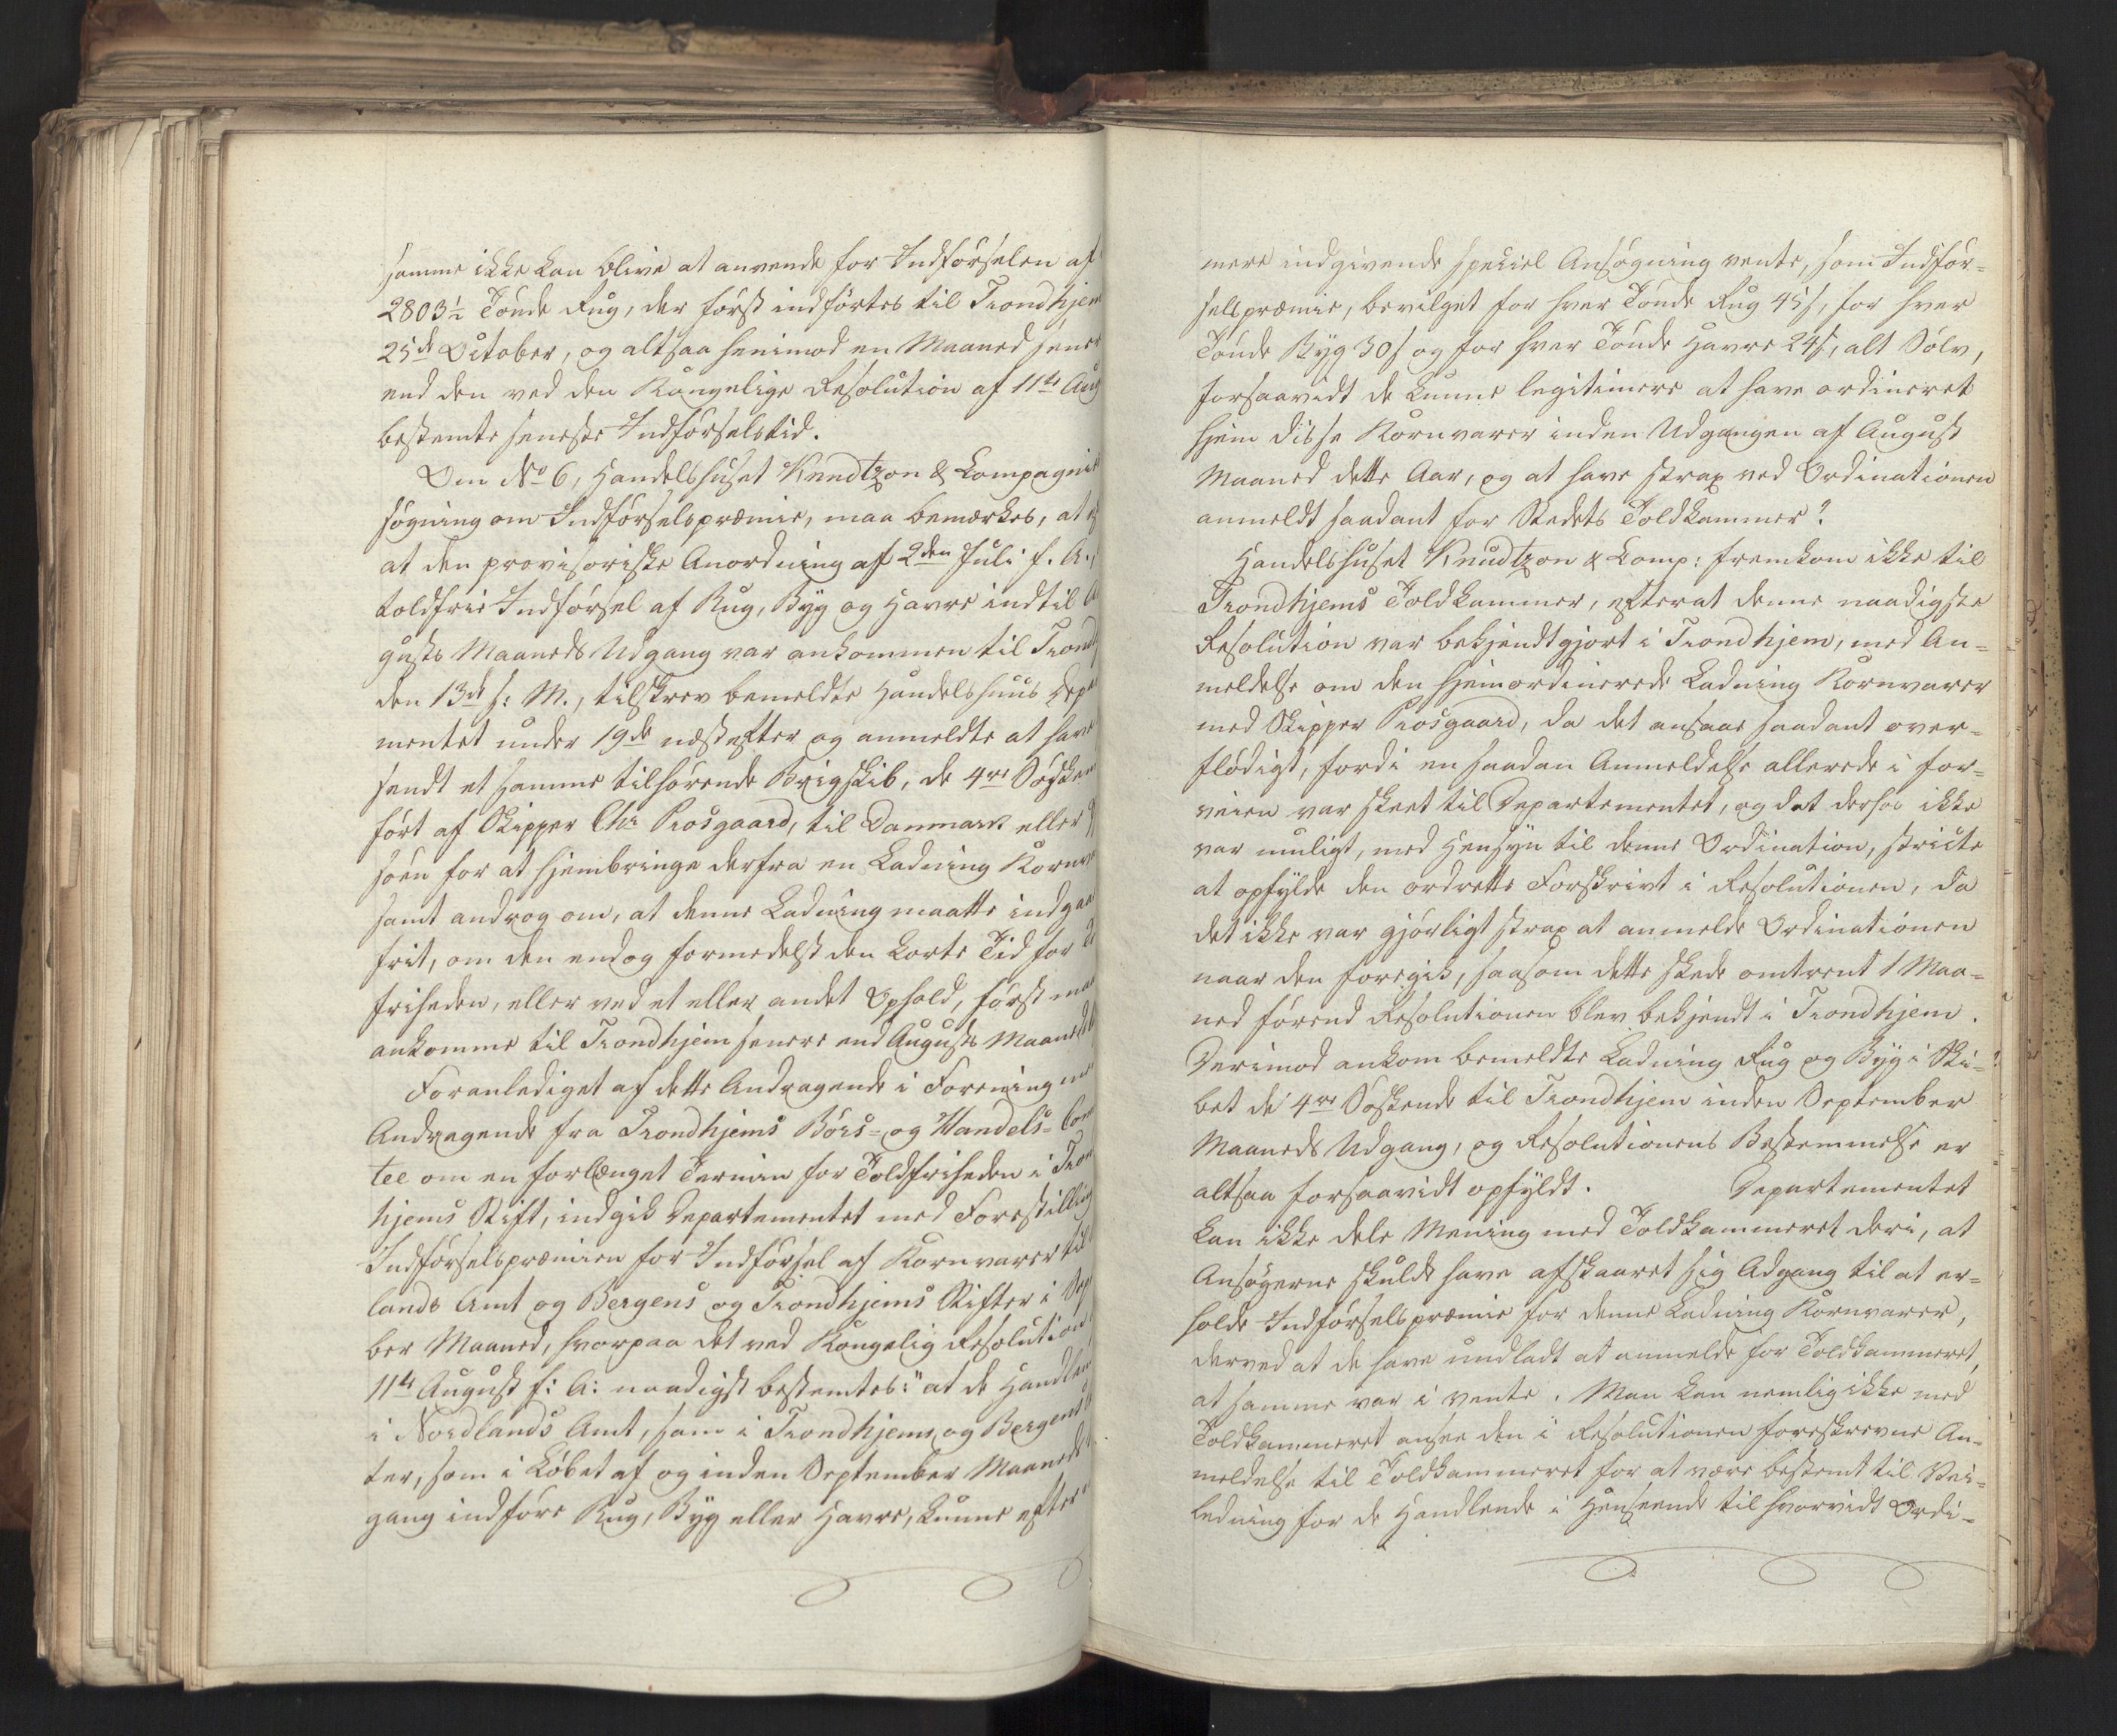 samme ikke kan blive at anvende for Indførselen af
2803½ Tønde Rug, der først indførtes til Trondhjem
25de October, og altsaa henimod en Maaned senere
end den ved den Kongelige Resolution af 11te Aug
bestemte seneste Indførselstid.
Om No 6, Handelshuset Knudtzon & Compagnie
søgning om Indførselspræmie, maa bemærkes, at ef
at den provisoriske Anordning af 2den Juli f. A.,
toldfrie Indførsel af Rug, Byg og Havre indtil A
gusts Maaneds Udgang var ankommen til Trond
den 13de s: M., tilskrev bemeldte Handelshuus Depar
mentet under 19de næstefter og anmeldte at have
sendt et samme tilhørende Brigskib, de 4re Søsken
ført af Skipper Chr Prosgaard, til Danmark eller
søen for at hjembringe derfra en Ladning Kornva
samt androg om, at denne Ladning maatte indgaa
frit, om den endog formedelst den korte Tid for T
friheden, eller ved et eller andet Ophold, først maa
ankomme til Trondhjem senere end Augusts Maaneds
Foranlediget af dette Andragende i Forening me
Andragende fra Trondhjems Børs- og Handels-Com
tee om en forlænget Termin for Toldfriheden i Tron
hjems Stift, indgik Departementet med Forestilling
Indførselspræmien for Indførsel af Kornvarer til
lands Amt og Bergens og Trondhjems Stifter i Sep
ber Maaned, hvorpaa det ved Kongelig Resolution
11te August f: A: naadigst bestemtes: "at de Handlen
i Nordlands Amt, som i Trondhjems og Bergens
ter, som i Løbet af og inden September Maaneds
gang indføre Rug, Byg eller Havre, kunne efter
mere indgivende speciel Ansøgning vente, som Indfør-
selspræmie, bevilget for hver Tønde Rug 45 s, for hver
Tønde Byg 30 s og for hver Tønde Havre 24 s, alt Sølv,
forsaavidt de kunne legitimere at have ordineret
hjem disse Kornvarer inden Udgangen af August
Maaned dette Aar, og at have strax ved Ordinationen
anmeldt saadant for Stedets Toldkammer".
Handelshuset Knudtzon & Comp: fremkom ikke til
Trondhjems Toldkammer, efterat denne naadigste
Resolution var bekjendtgjort i Trondhjem, med An-
meldelse om den hjemordinerede Ladning Kornvarer
med Skipper Prosgaard, da det ansaae saadant over-
flødigt, fordi en saadan Anmeldelse allerede i for-
veien var skeet til Departementet, og det derhos ikke
var muligt, med Hensyn til denne Ordination, stricte
at opfylde den ordrette Forskrivt i Resolutionen, da
det ikke var gjørligt strax at anmelde Ordinationen
naar den foregik, saasom dette skede omtrent 1 Maa-
ned førend Resolutionen blev bekjendt i Trondhjem.
Derimod ankom bemeldte Ladning Rug og Byg i Ski-
bet de 4re Søskende til Trondhjem inden September
Maaneds Udgang, og Resolutionens Bestemmelse er
altsaa forsaavidt opfyldt. Departementet
kan ikke dele Mening med Toldkammeret deri, at
Ansøgerne skulde have afskaaret sig Adgang til at er-
holde Indførselspræmie for denne Ladning Kornvarer,
derved at de have undladt at anmelde for Toldkammeret,
at samme var i vente. Man kan nemlig ikke med
Toldkammeret ansee den i Resolutionen foreskrevne An-
meldelse til Toldkammeret for at være bestemt til Vei-
ledning for de Handlende i Henseende til hvorvidt Ordi-